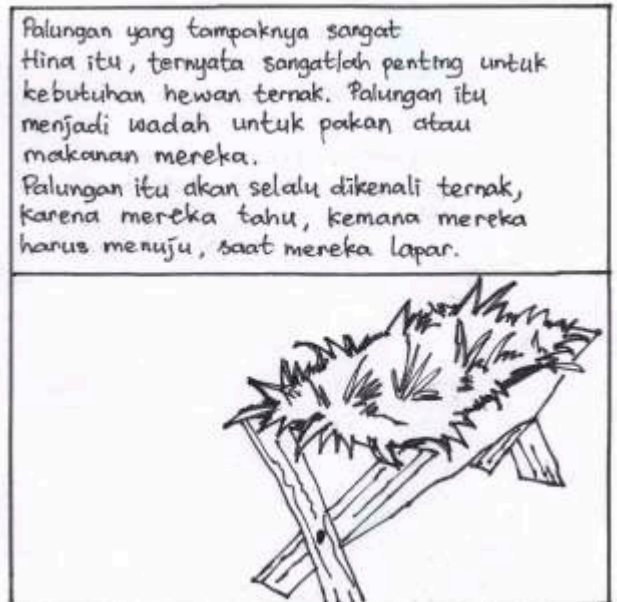 Palungan yang tampaknya sangat
Hina itu, ternyata sangatlah penting untuk
kebutuhan hewan ternak. Palungan itu
menjadi wadah untuk pakan atau
makanan mereka.
Palungan itu akan selalu dikenali ternak,
karena mereka tahu, kemana mereka
harus menuju, saat mereka lapar.